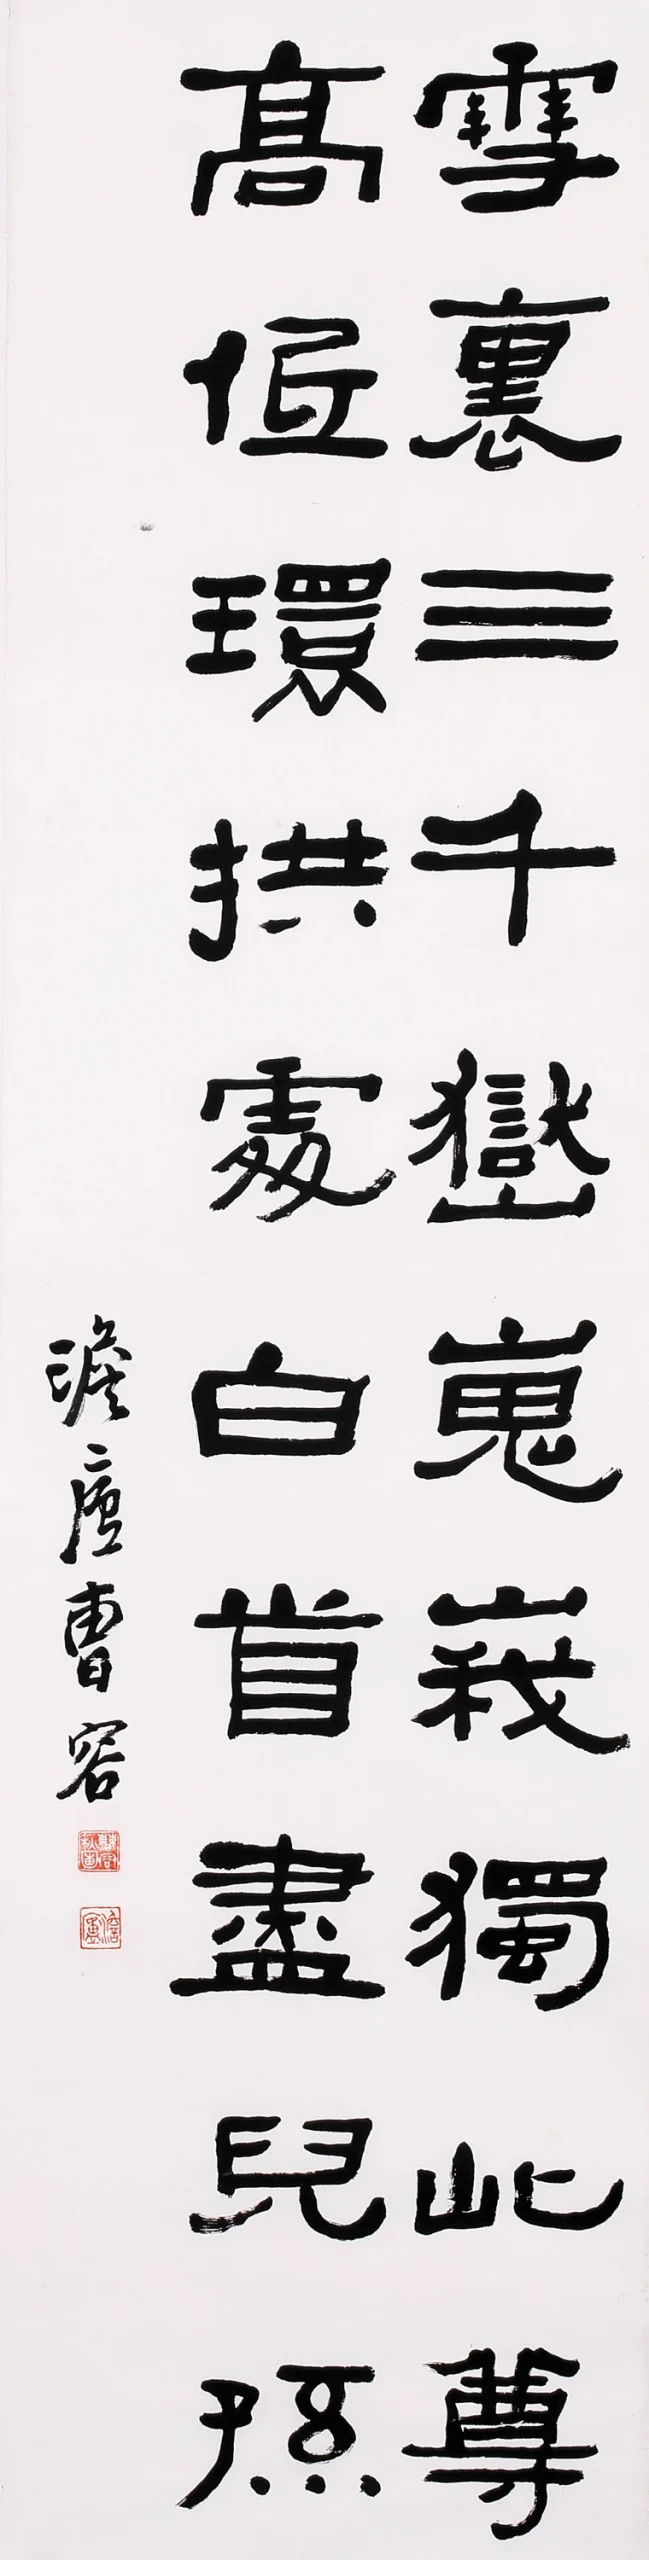 雪裏三千嶽嵬峩獨此尊
高低環拱處白首盡兒孫
澹廬曹容